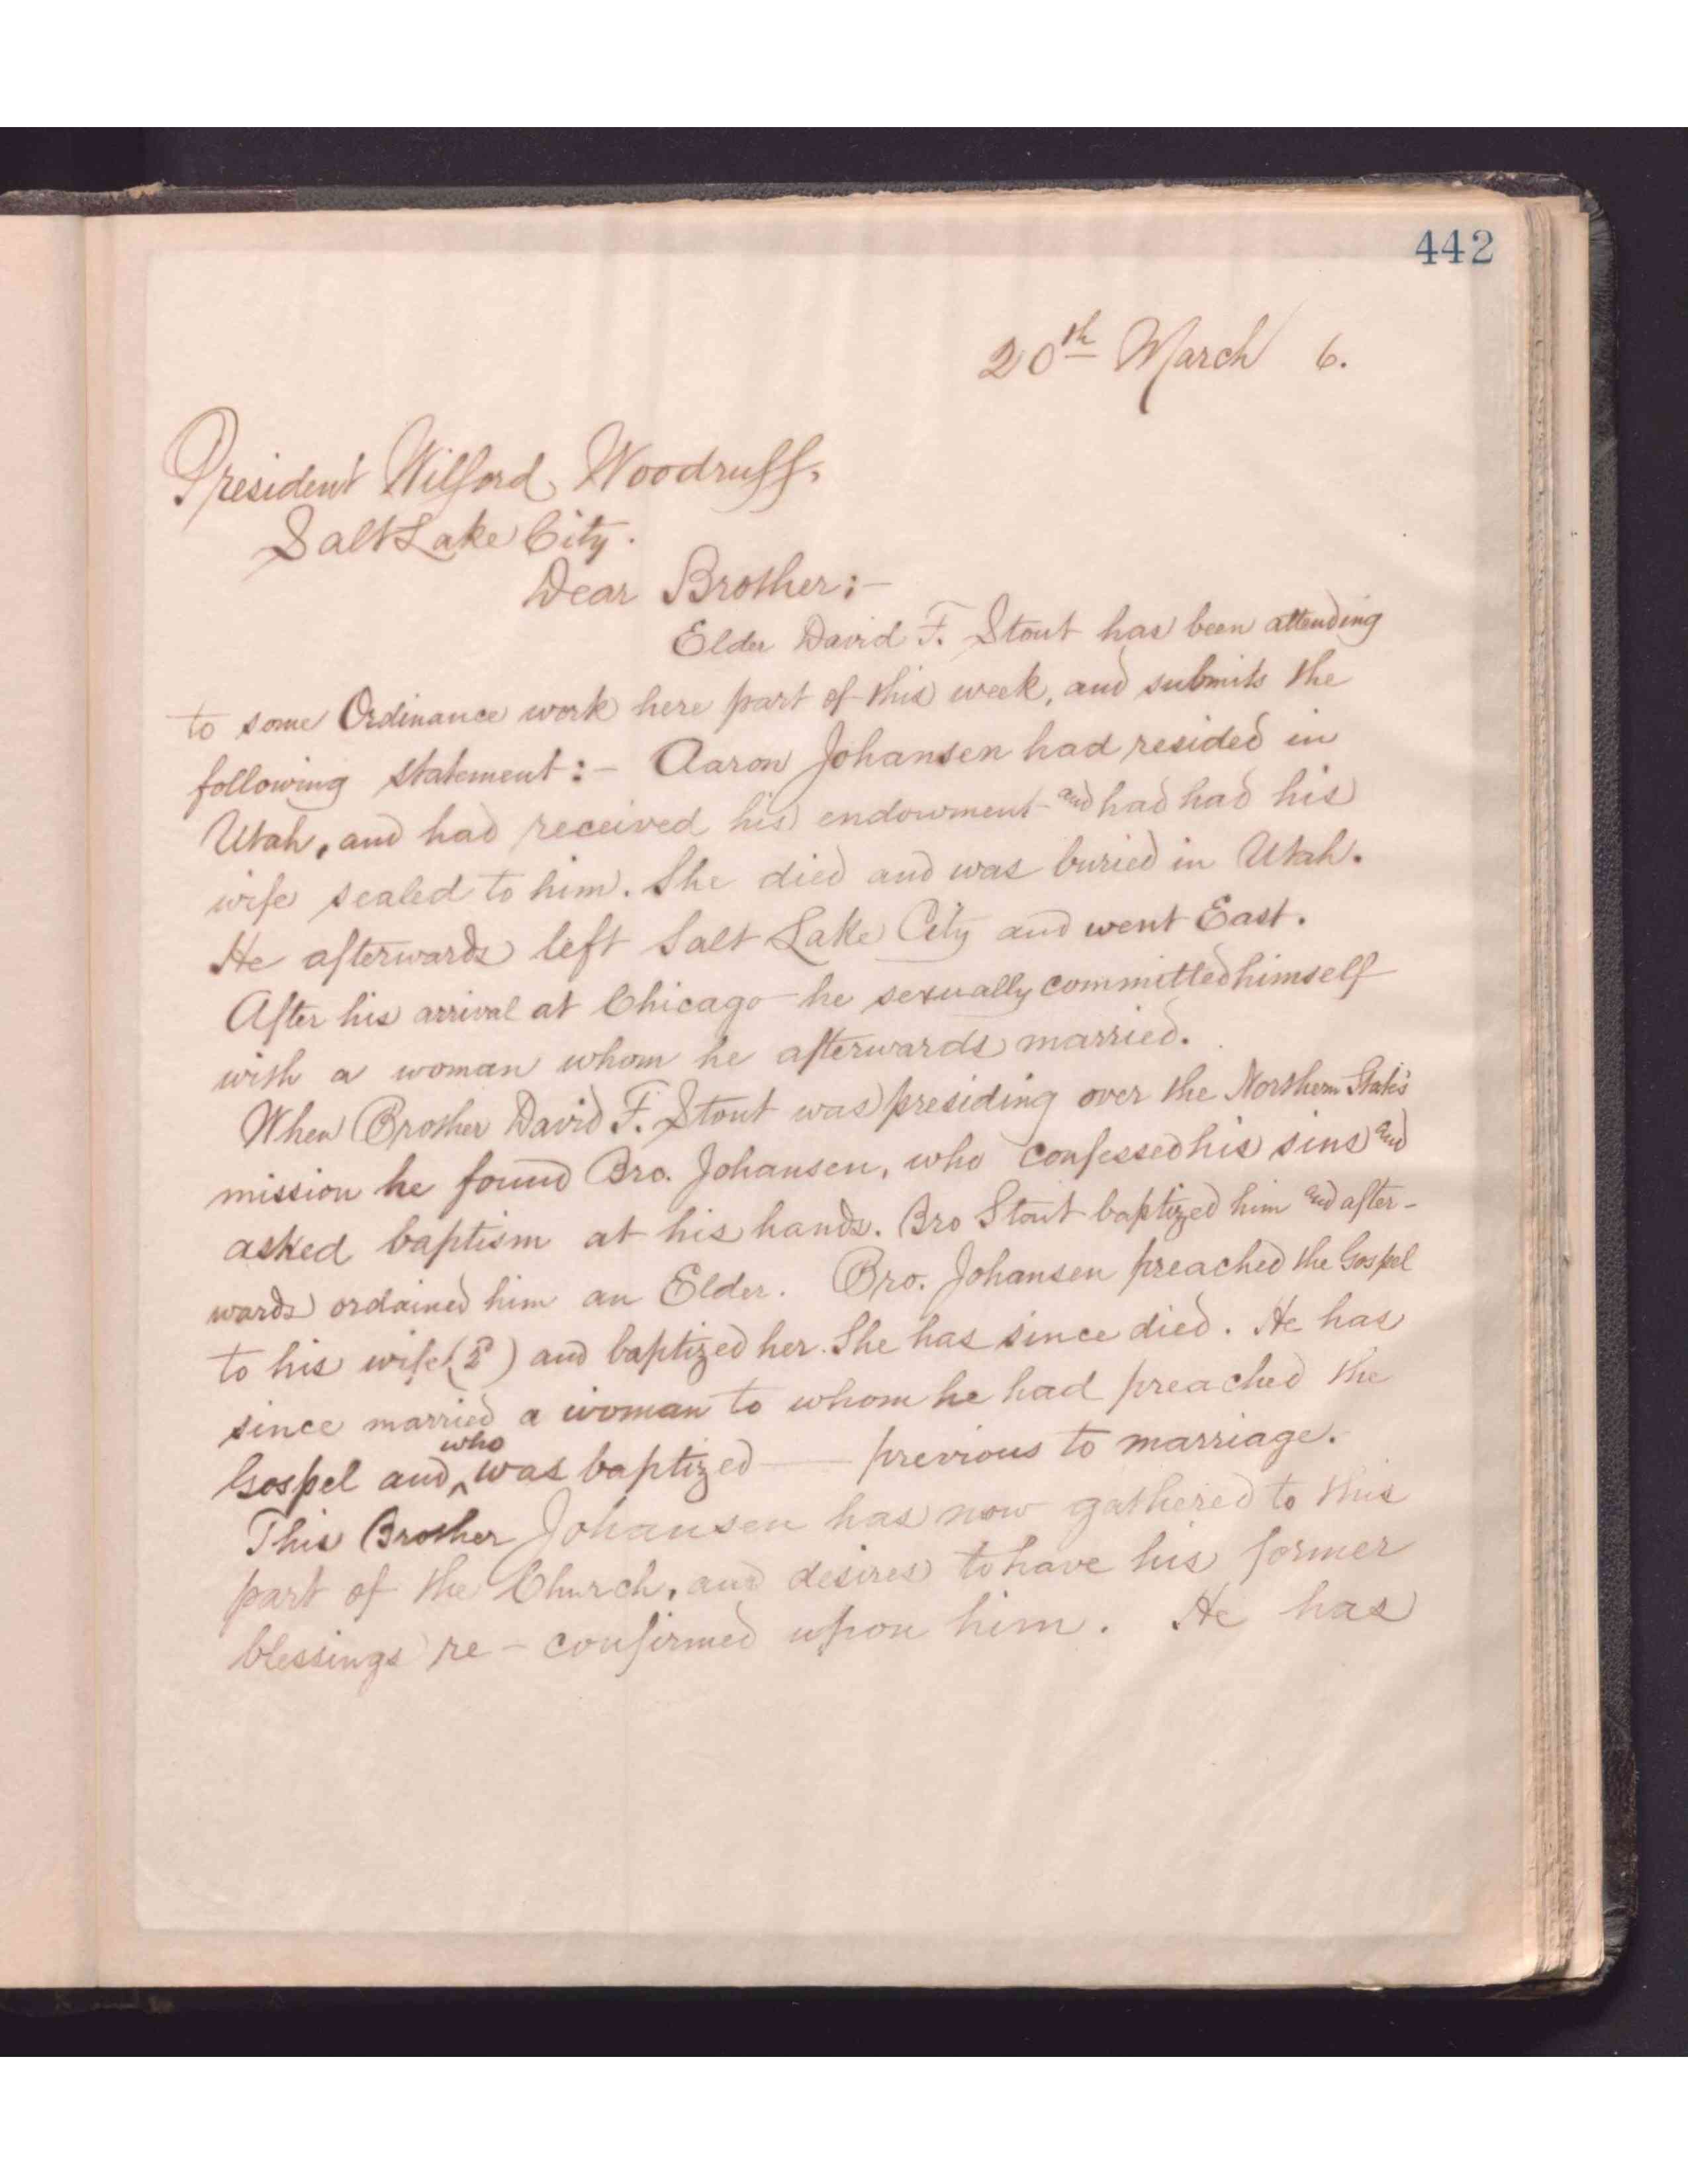 442
20th March 6.
President Wilford Woodruff.
Salt Lake City.
Dear Brother:-
Elder David F. Stout has been attending
to some Ordinance work here part of this week, and submits the
following statement:- Aaron Johansen had resided in
Utah, and had received his endowment and had had his
wife sealed to him. She died and was buried in Utah.
He afterwards left Salt Lake City and went East.
After his arrival at Chicago he sexually committed himself
with a woman whom he afterwards married.
When Brother David F. Stout was presiding over the Northern State's
mission he found Bro. Johansen, who confessed his sins and
asked baptism at his hands. Bro Stout baptized him and after-
wards ordained him an Elder. Bro. Johansen preached the Gospel
to his wife (2d) and baptized her. She has since died. He has
since married a woman to whom he had preached the
Gospel and who was baptized — previous to marriage.
This Brother Johansen has now gathered to this
part of the Church, and desires to have his former
blessings re-confirmed upon him. He has